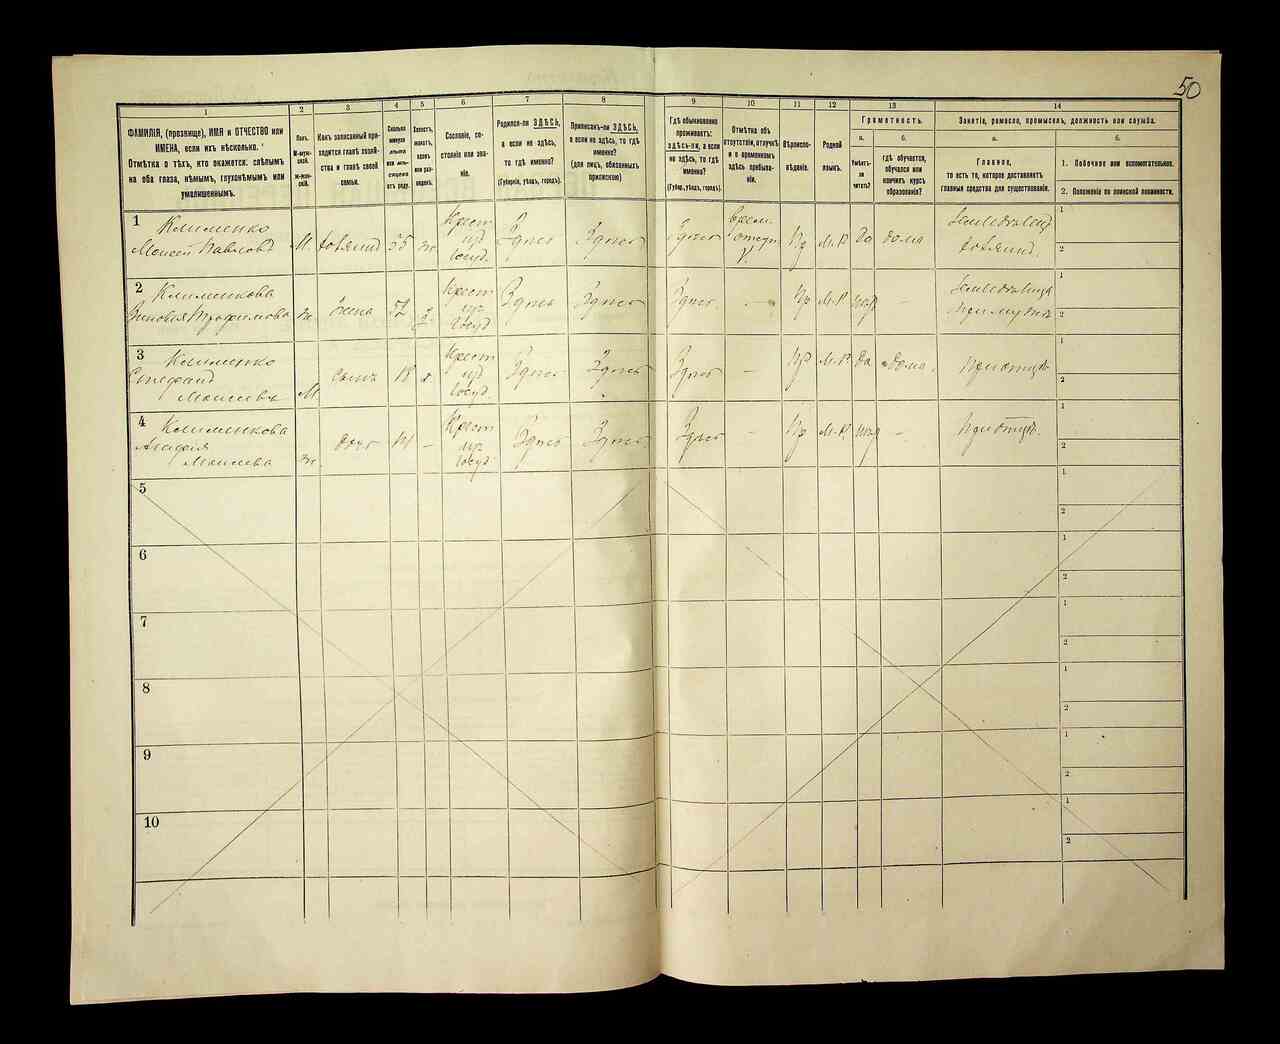 50
1 2 3 4 5 6 7 8 9 10 11 12 13 14
ФАМИЛІЯ, (прозвище), ИМЯ и ОТЧЕСТВО или
ИМЕНА, если ихъ нѣсколько.
Отмѣтка о тѣхъ, кто окажется: слѣпымъ
на оба глаза, нѣмымъ, глухонѣмымъ или
умалишеннымъ.
Полъ.
М-муж-
ской.
Ж-жен-
скій.
Какъ записанный при-
ходится главѣ хозяй-
ства и главѣ своей
семьи.
Сколько
минуло
лѣтъ
или мѣ-
сяцевъ
отъ роду.
Холостъ,
женатъ,
вдовъ
или раз-
веденъ.
Сословіе, со-
стояніе или зва-
ніе.
Родился-ли ЗДѢСЬ,
а если не здѣсь,
то гдѣ именно?
(Губернія, уѣздъ, городъ).
Приписанъ-ли ЗДѢСЬ,
а если не здѣсь, то гдѣ
именно?
(для лицъ, обязанныхъ
припискою)
Гдѣ обыкновенно
проживаетъ:
здѣсь-ли, а если
не здѣсь, то гдѣ
именно?
(Губер., уѣздъ, городъ).
Отмѣтка объ
отсутствіи, отлучкѣ
и о временномъ
здѣсь пребыва-
ніи.
Вѣроиспо-
вѣданіе.
Родной
языкъ.
Грамотность.
а. б.
Умѣетъ-
ли
читать?
гдѣ обучается,
обучался или
кончилъ курсъ
образованія?
Занятіе, ремесло, промыселъ, должность или служба.
а. б.
Главное,
то есть то, которое доставляетъ
главныя средства для существованія.
1. Побочное или вспомогательное.
2. Положеніе по воинской повинности.
1 Клименко
Моисей Павловъ
М. хозяинъ 55 ж
Крест
из
госуд.
Здѣсь Здѣсь Здѣсь
Пр М.Р да дома
хозяинъ.
1
2
2 Клименкова
Трофимова
ж жена 52
Крест
из
госуд
Здѣсь Здѣсь Здѣсь - Пр М.Р -
При мужѣ
1
2
3 Клименко
Стефанъ
Моисеевъ
М. сынъ 18 х
Крест
из
госуд.
Здѣсь Здѣсь Здѣсь - Пр М.Р да дома
При отцѣ
1
2
4 Клименкова
Агафія
Моисеева
ж. дочь -
Крест
из
госуд.
Здѣсь Здѣсь Здѣсь - Пр М.Р -
При отцѣ.
1
2
5
1
2
6
1
2
7
1
2
8
1
2
9
1
2
10
1
2